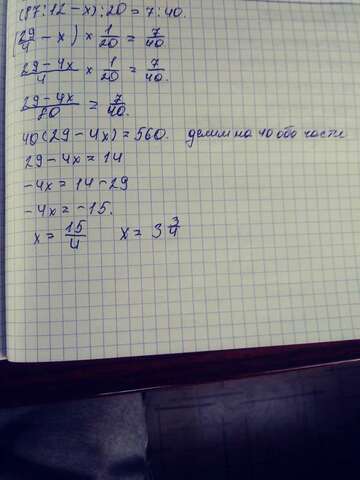 (87:12-x):20=7:40.
(29/4 - x) × 1/20 = 7/40
29-4x/4 × 1/20 = 7/40.
29-4x/80 = 7/40.
40(29-4x)=560. делим на 40 обе части
29-4x=14
-4x=14-29
-4x=-15.
x=15/4 x=3 3/4